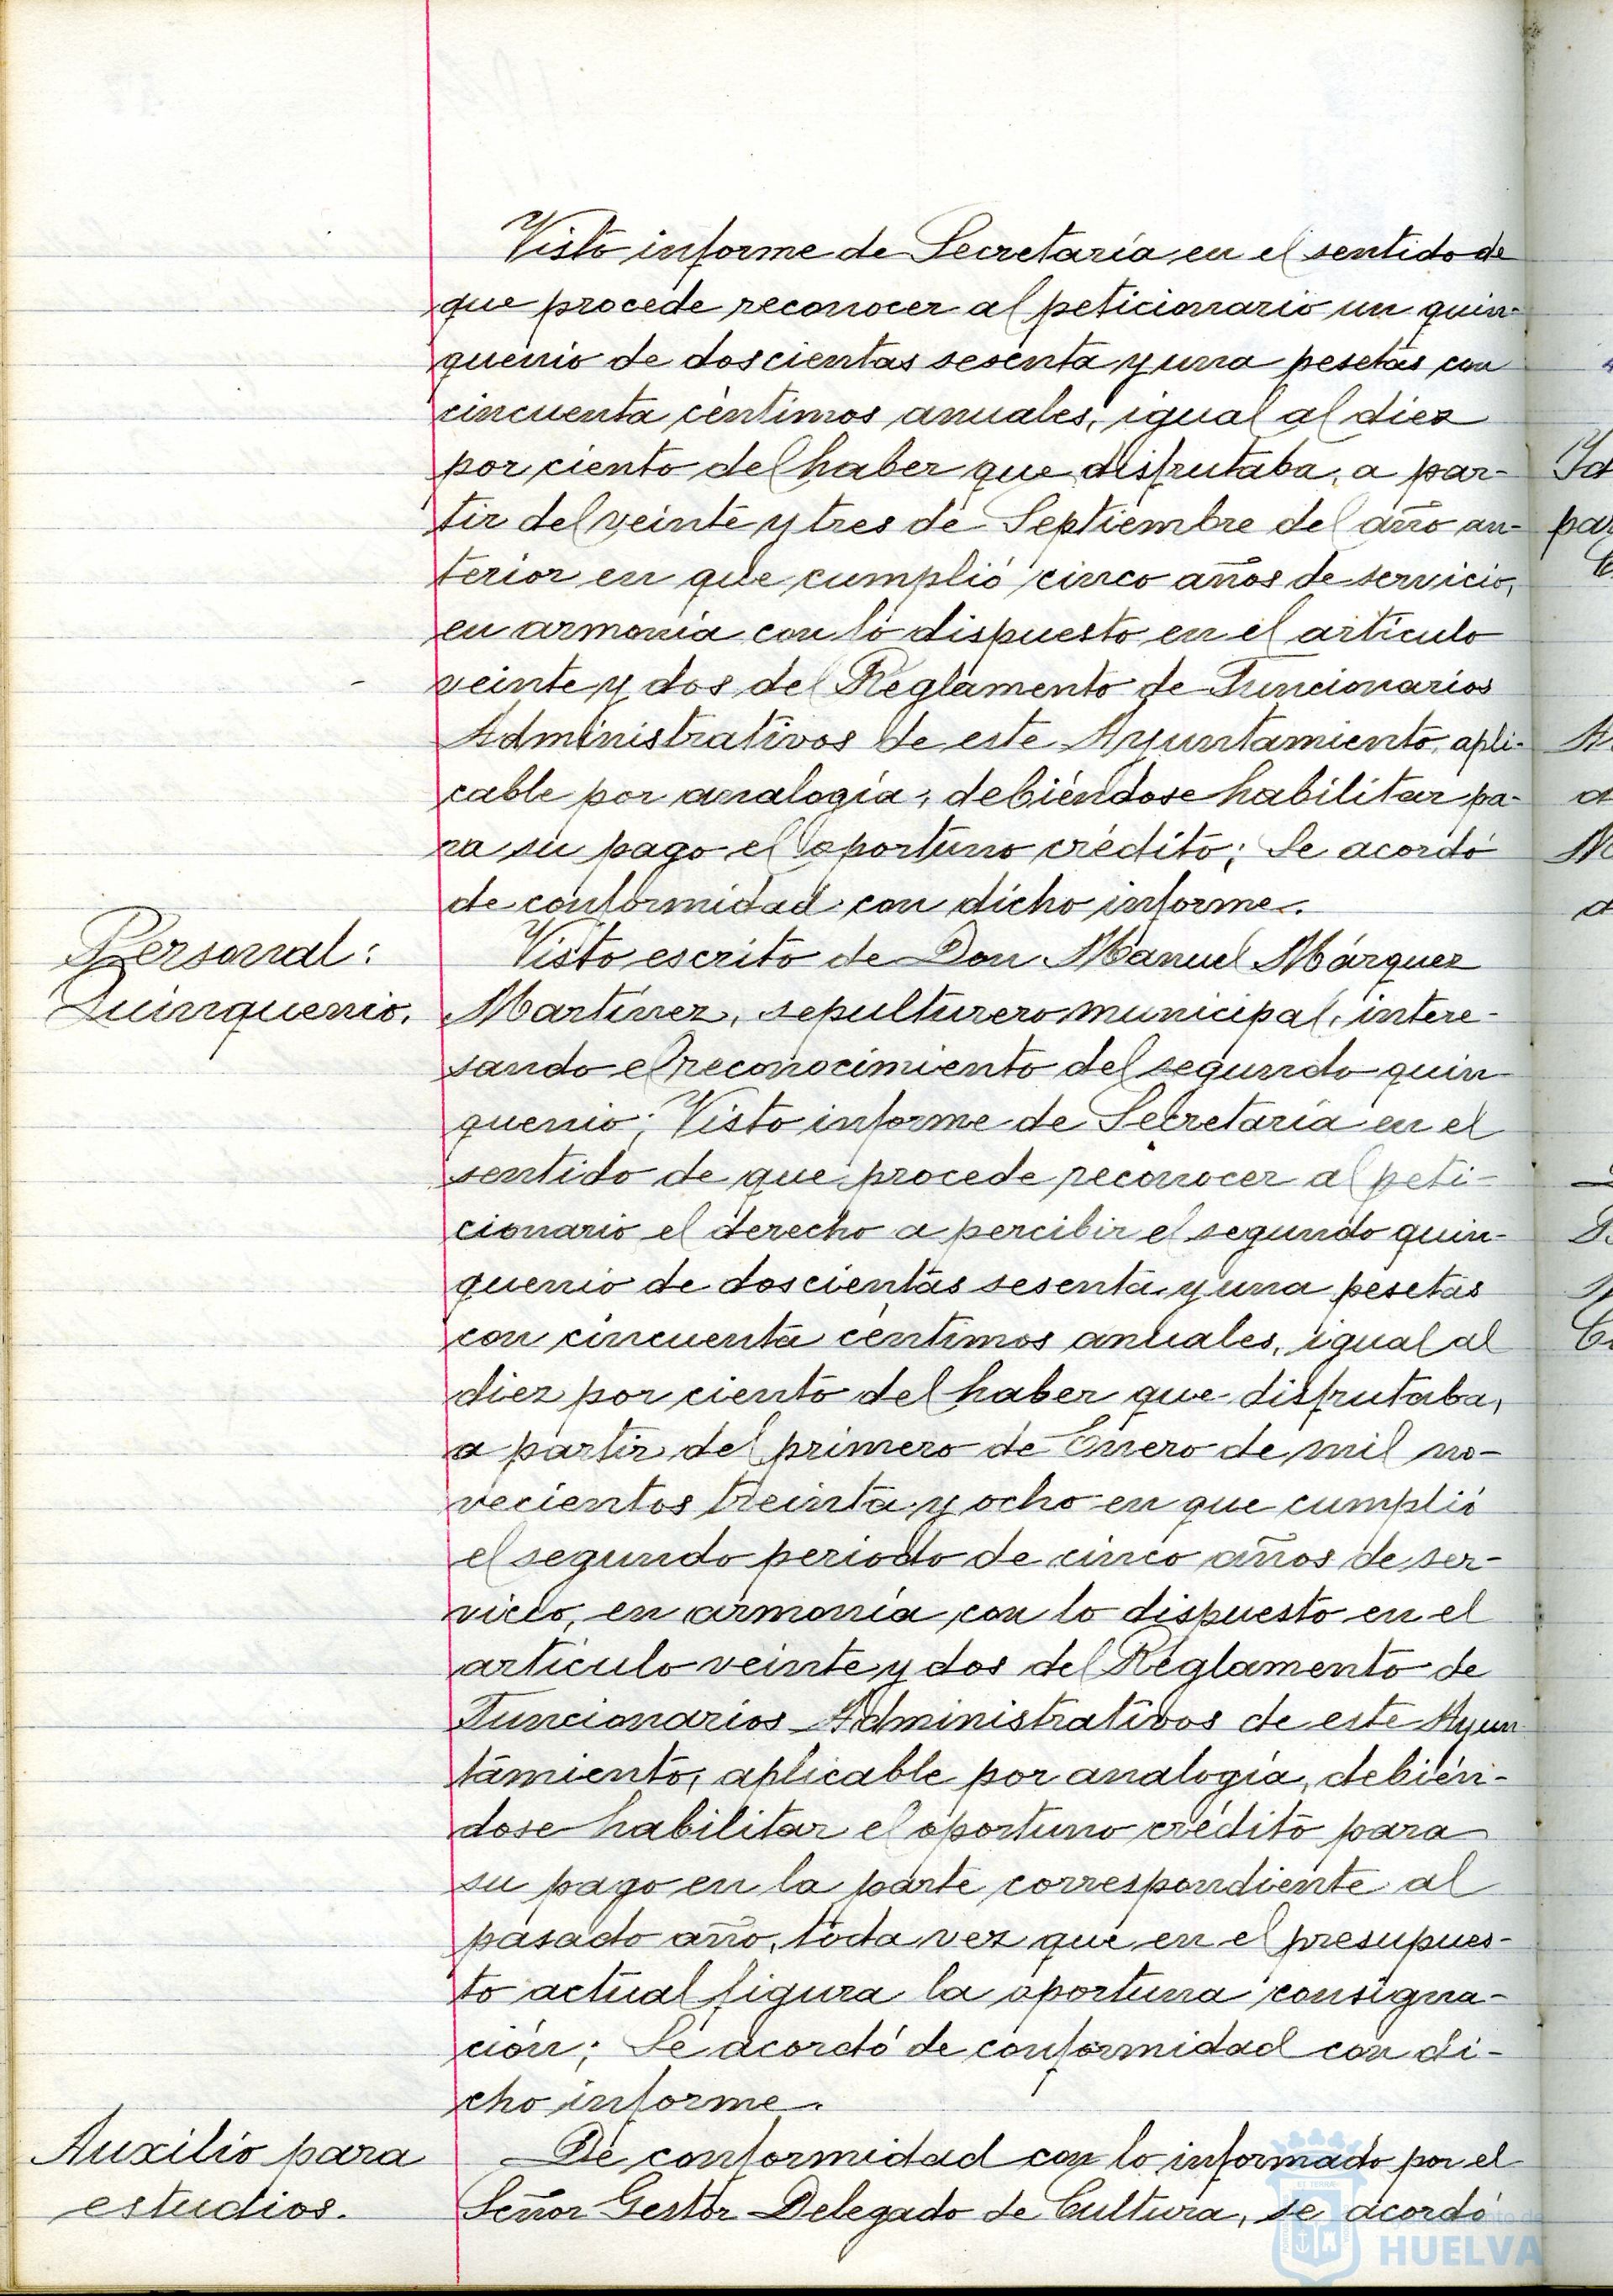 Visto informe de Secretaría en el sentido de
que procede reconocer al peticionario un quin-
quenio de doscientas sesenta y una pesetas con
cincuenta céntimos anuales, igual al diez
por ciento del haber que disfrutaba, a par-
tir del veinte y tres de Septiembre del año an-
terior en que cumplió cinco años de servicio,
en armonía con lo dispuesto en el artículo
veinte y dos del Reglamento de Funcionarios
Administrativos de este Ayuntamiento, apli-
cable por analogía, debiéndose habilitar pa-
ra su pago el oportuno crédito; Se acordó
de conformidad con dicho informe.
Personal:
Quinquenio.
Visto escrito de Don Manuel Márquez
Martínez, sepulturero municipal, intere-
sando el reconocimiento del segundo quin
quenio; Visto informe de Secretaría en el
sentido de que procede reconocer al peti-
cionario el derecho a percibir el segundo quin-
quenio de doscientas sesenta y una pesetas
con cincuenta céntimos anuales, igual al
diez por ciento del haber que disfrutaba,
a partir del primero de Enero de mil no-
vecientos treinta y ocho en que cumplió
el segundo periodo de cinco años de ser-
vicio, en armonía con lo dispuesto en el
artículo veinte y dos del Reglamento de
Funcionarios Administrativos de este Ayun
tamiento, aplicable por analogía, debién-
dose habilitar el oportuno crédito para
su pago en la parte correspondiente al
pasado año, toda vez que en el presupues-
to actual figura la oportuna consigna-
ción; Se acordó de conformidad con di-
cho informe.
Auxilio para
estudios.
De conformidad con lo informado por el
Señor Gestor Delegado de Cultura, se acordó
HUELVA